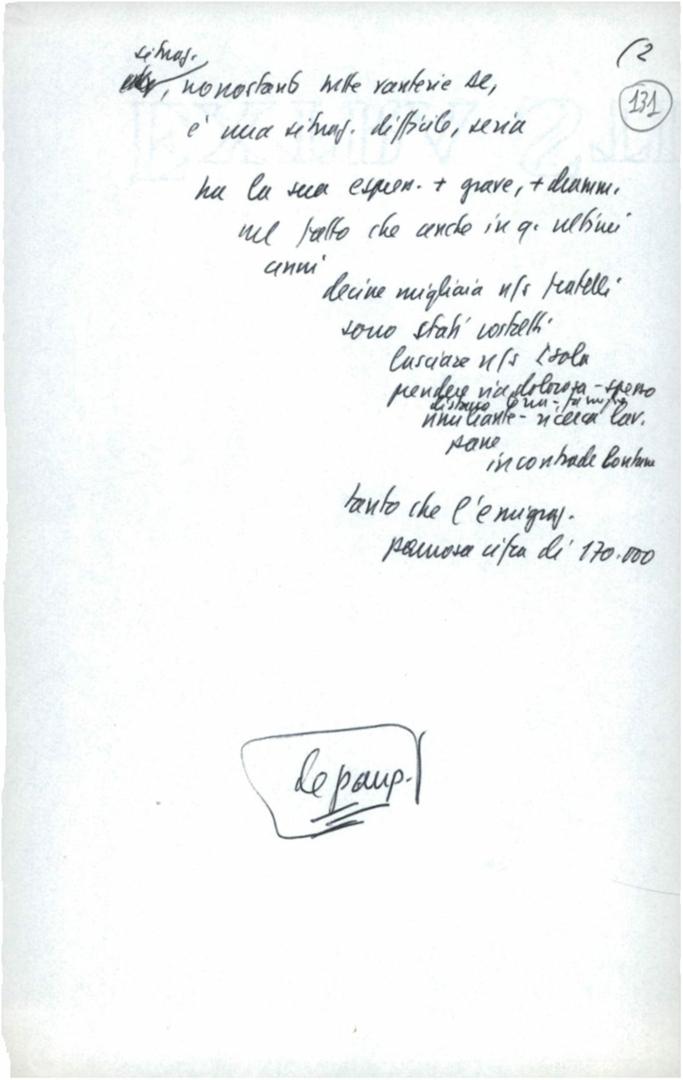 (2
131
situaz.
, nonostante tutte vanterie DC,
è una situaz. difficile, seria
ha la sua espres. + grave, + dramm.
nel fatto che anche in q. ultimi
anni
decine migliaia n/s fratelli
sono stati costretti
lasciare n/s Isola
prendere via dolorosa - spesso
umiliante - ricerca lav.
pane
in contrade lontane
tanto che l'emigraz.
paurosa cifra di 170.000
depaup.